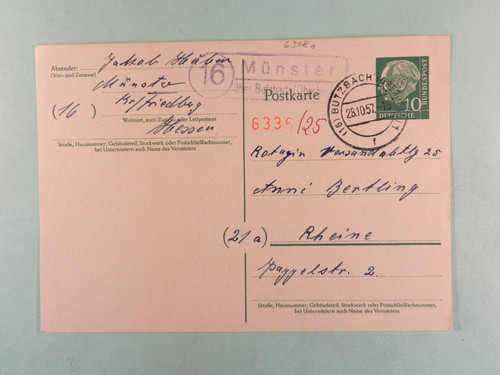 6308a
Absender:
(Vor- und Zuname)
Jakob Huber
Münster
(16)
Kr/Friedbg
Wohnort, auch Zustell- oder Leitpostamt
Hessen
Straße, Hausnummer, Gebäudeteil, Stockwerk oder Postschließfachnummer,
bei Untermietern auch Name des Vermieters
16
Münster
über Butzbach (Oberh
(16) BUTZBACH
28.10.57
1
f
DEUTSCHE
BUNDESPOST
10
Postkarte
6336/25
Rotagin Versandabtlg 25
Anni Bertling
(21a)
Rheine
Pappelstr. 2.
Straße, Hausnummer, Gebäudeteil, Stockwerk oder Postschließfachnummer,
bei Untermietern auch Name des Vermieters